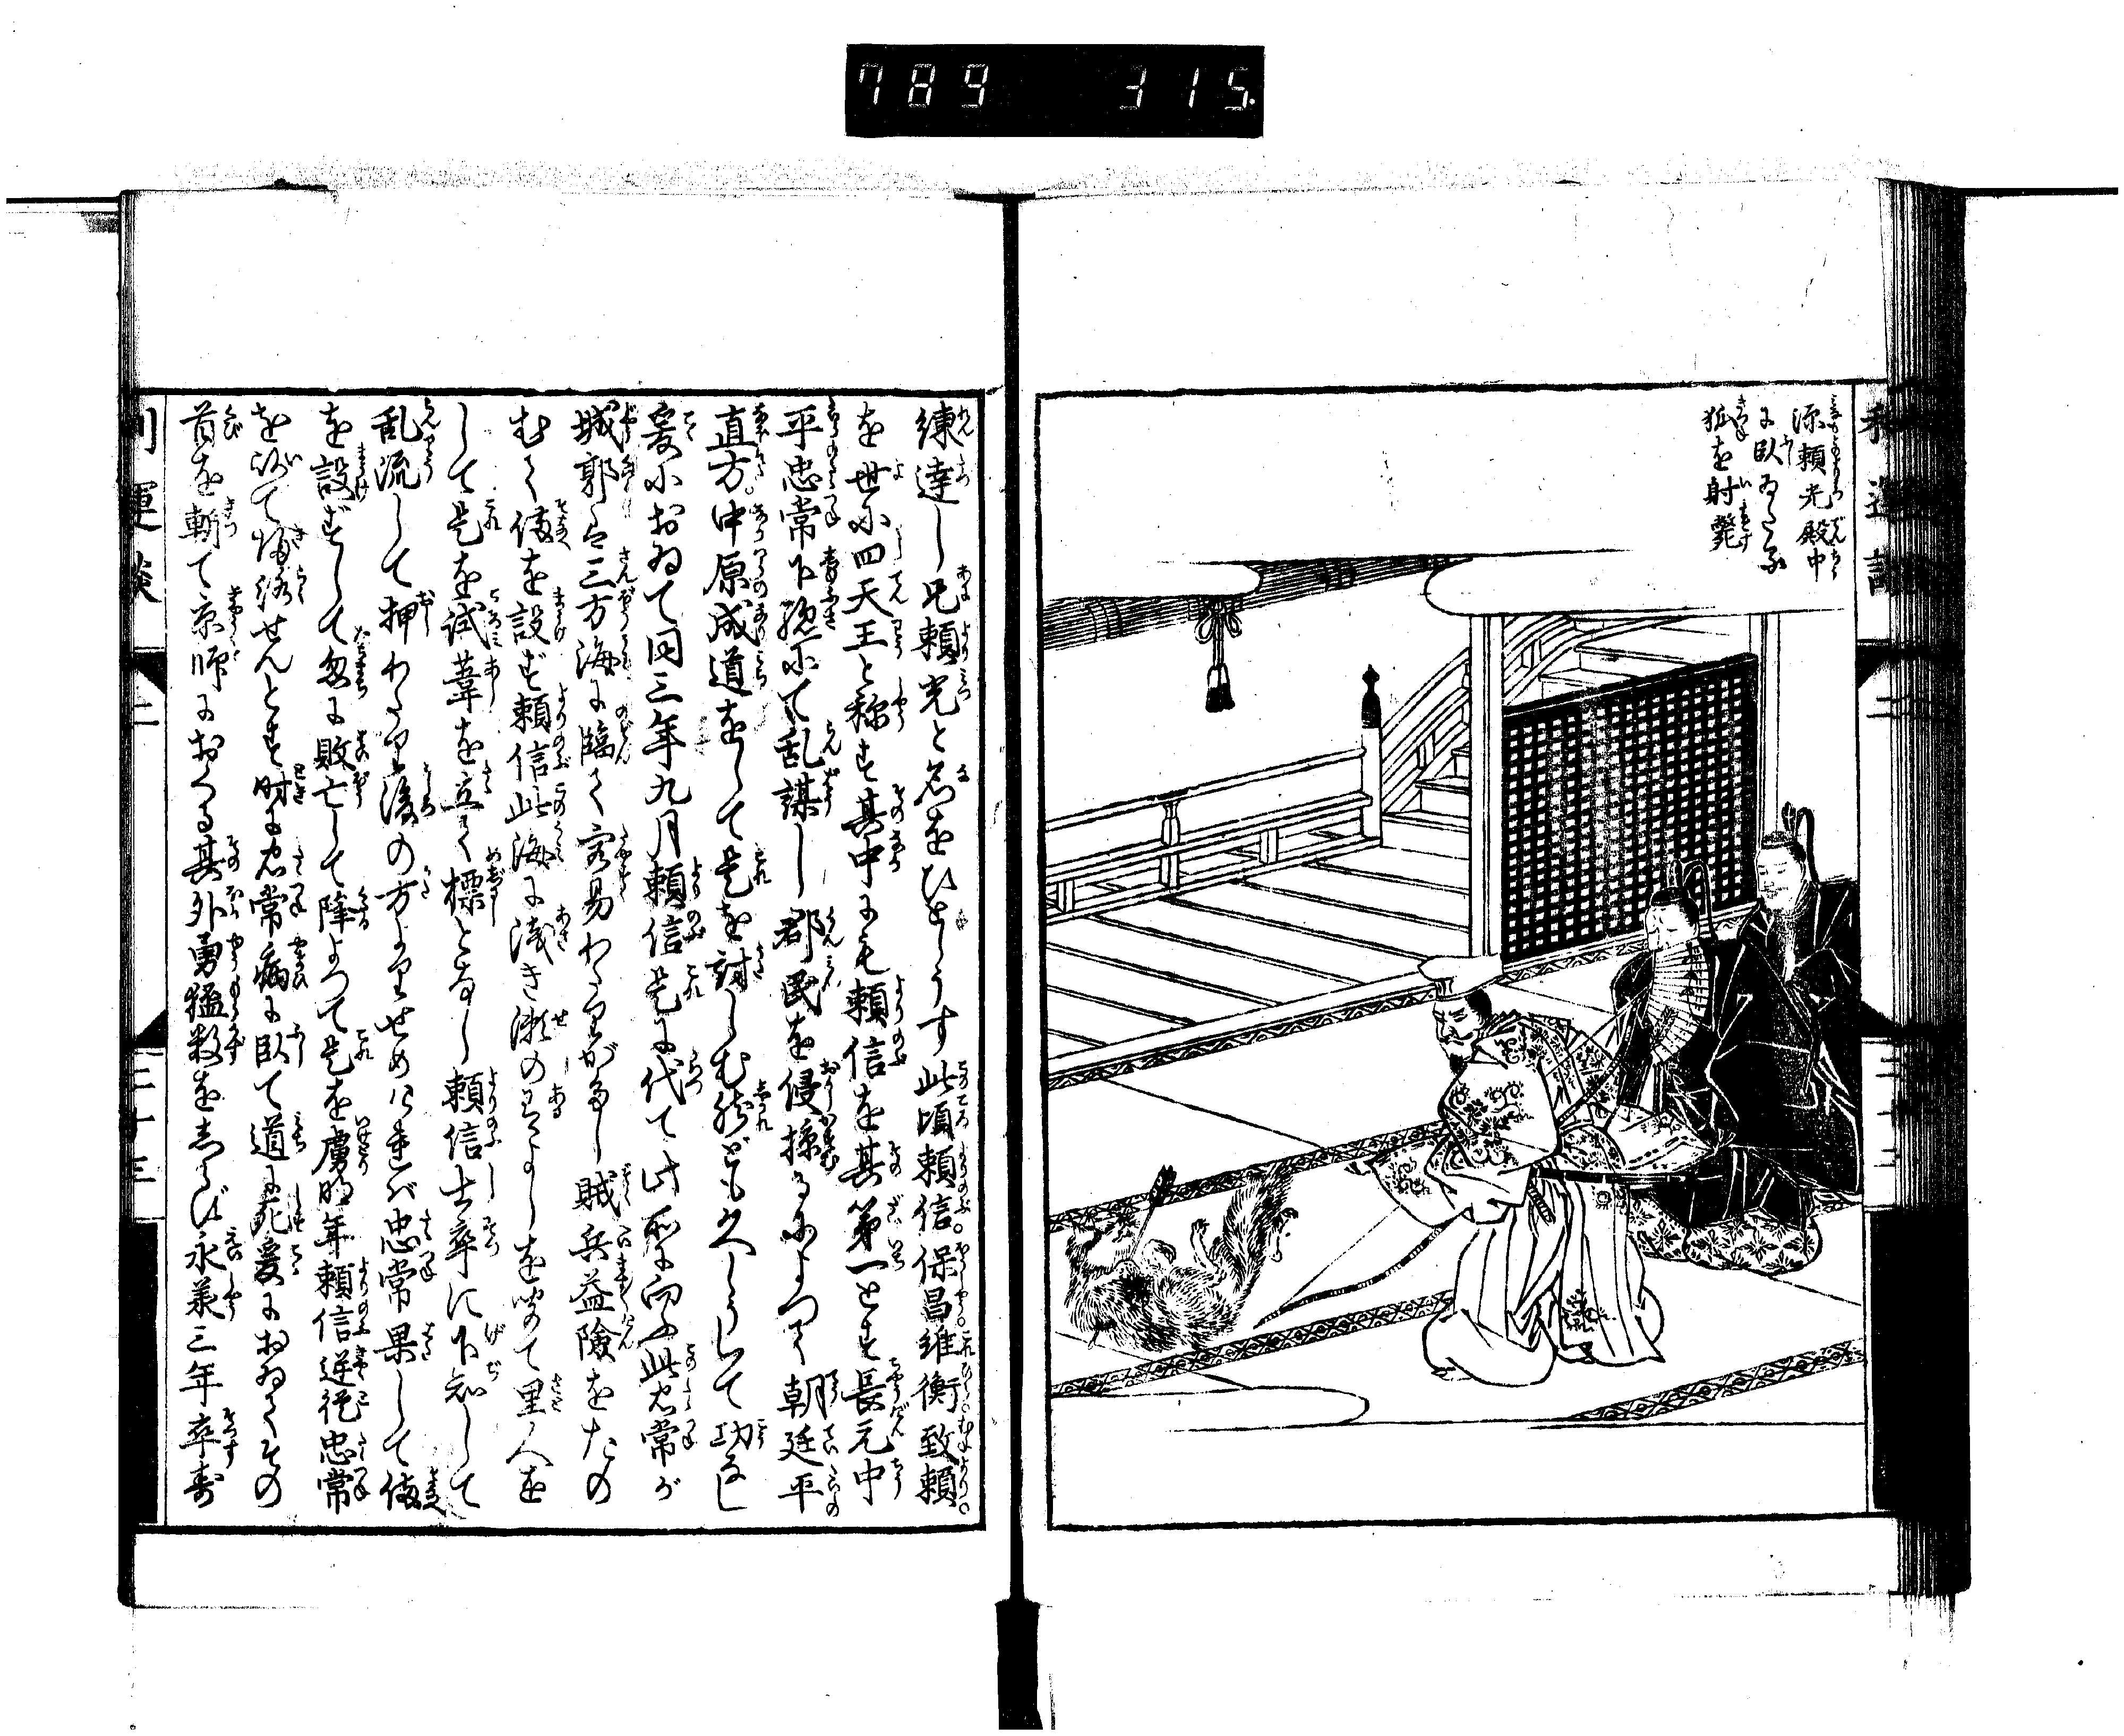 789 315.
源頼光殿中
に臥ゐたる
狐を射斃
練達し兄頼光と名をひとしうす此頃頼信。保昌。維衡。致頼。
を世に四天王と称す其中にも頼信を其第一とす長元中
平忠常下総にて乱謀し郡民を侵掠るによつて朝廷平
直方。中原成道をして是を討しむ然ども久しうして功なし
爰におゐて同三年九月頼信是に代て此所に向ふ此忠常が
城郭は三方海に臨て容易わたりがたし賊兵益険をたの
むて備を設ず頼信此海に浅き瀬のあるよしを聞て里人を
して是を試葦を立て標となし頼信士卒に下知して
乱流して押わたり後の方よりせめければ忠常果して備
を設ずして忽に敗亡して降よつて是を虜明年頼信逆徒忠常
を

て帰洛せんとす時に忠常病に臥て道に死爰におゐてその
首を斬て京師におくる其外勇猛数をしらず永承三年卒寿
運談
二
三十三